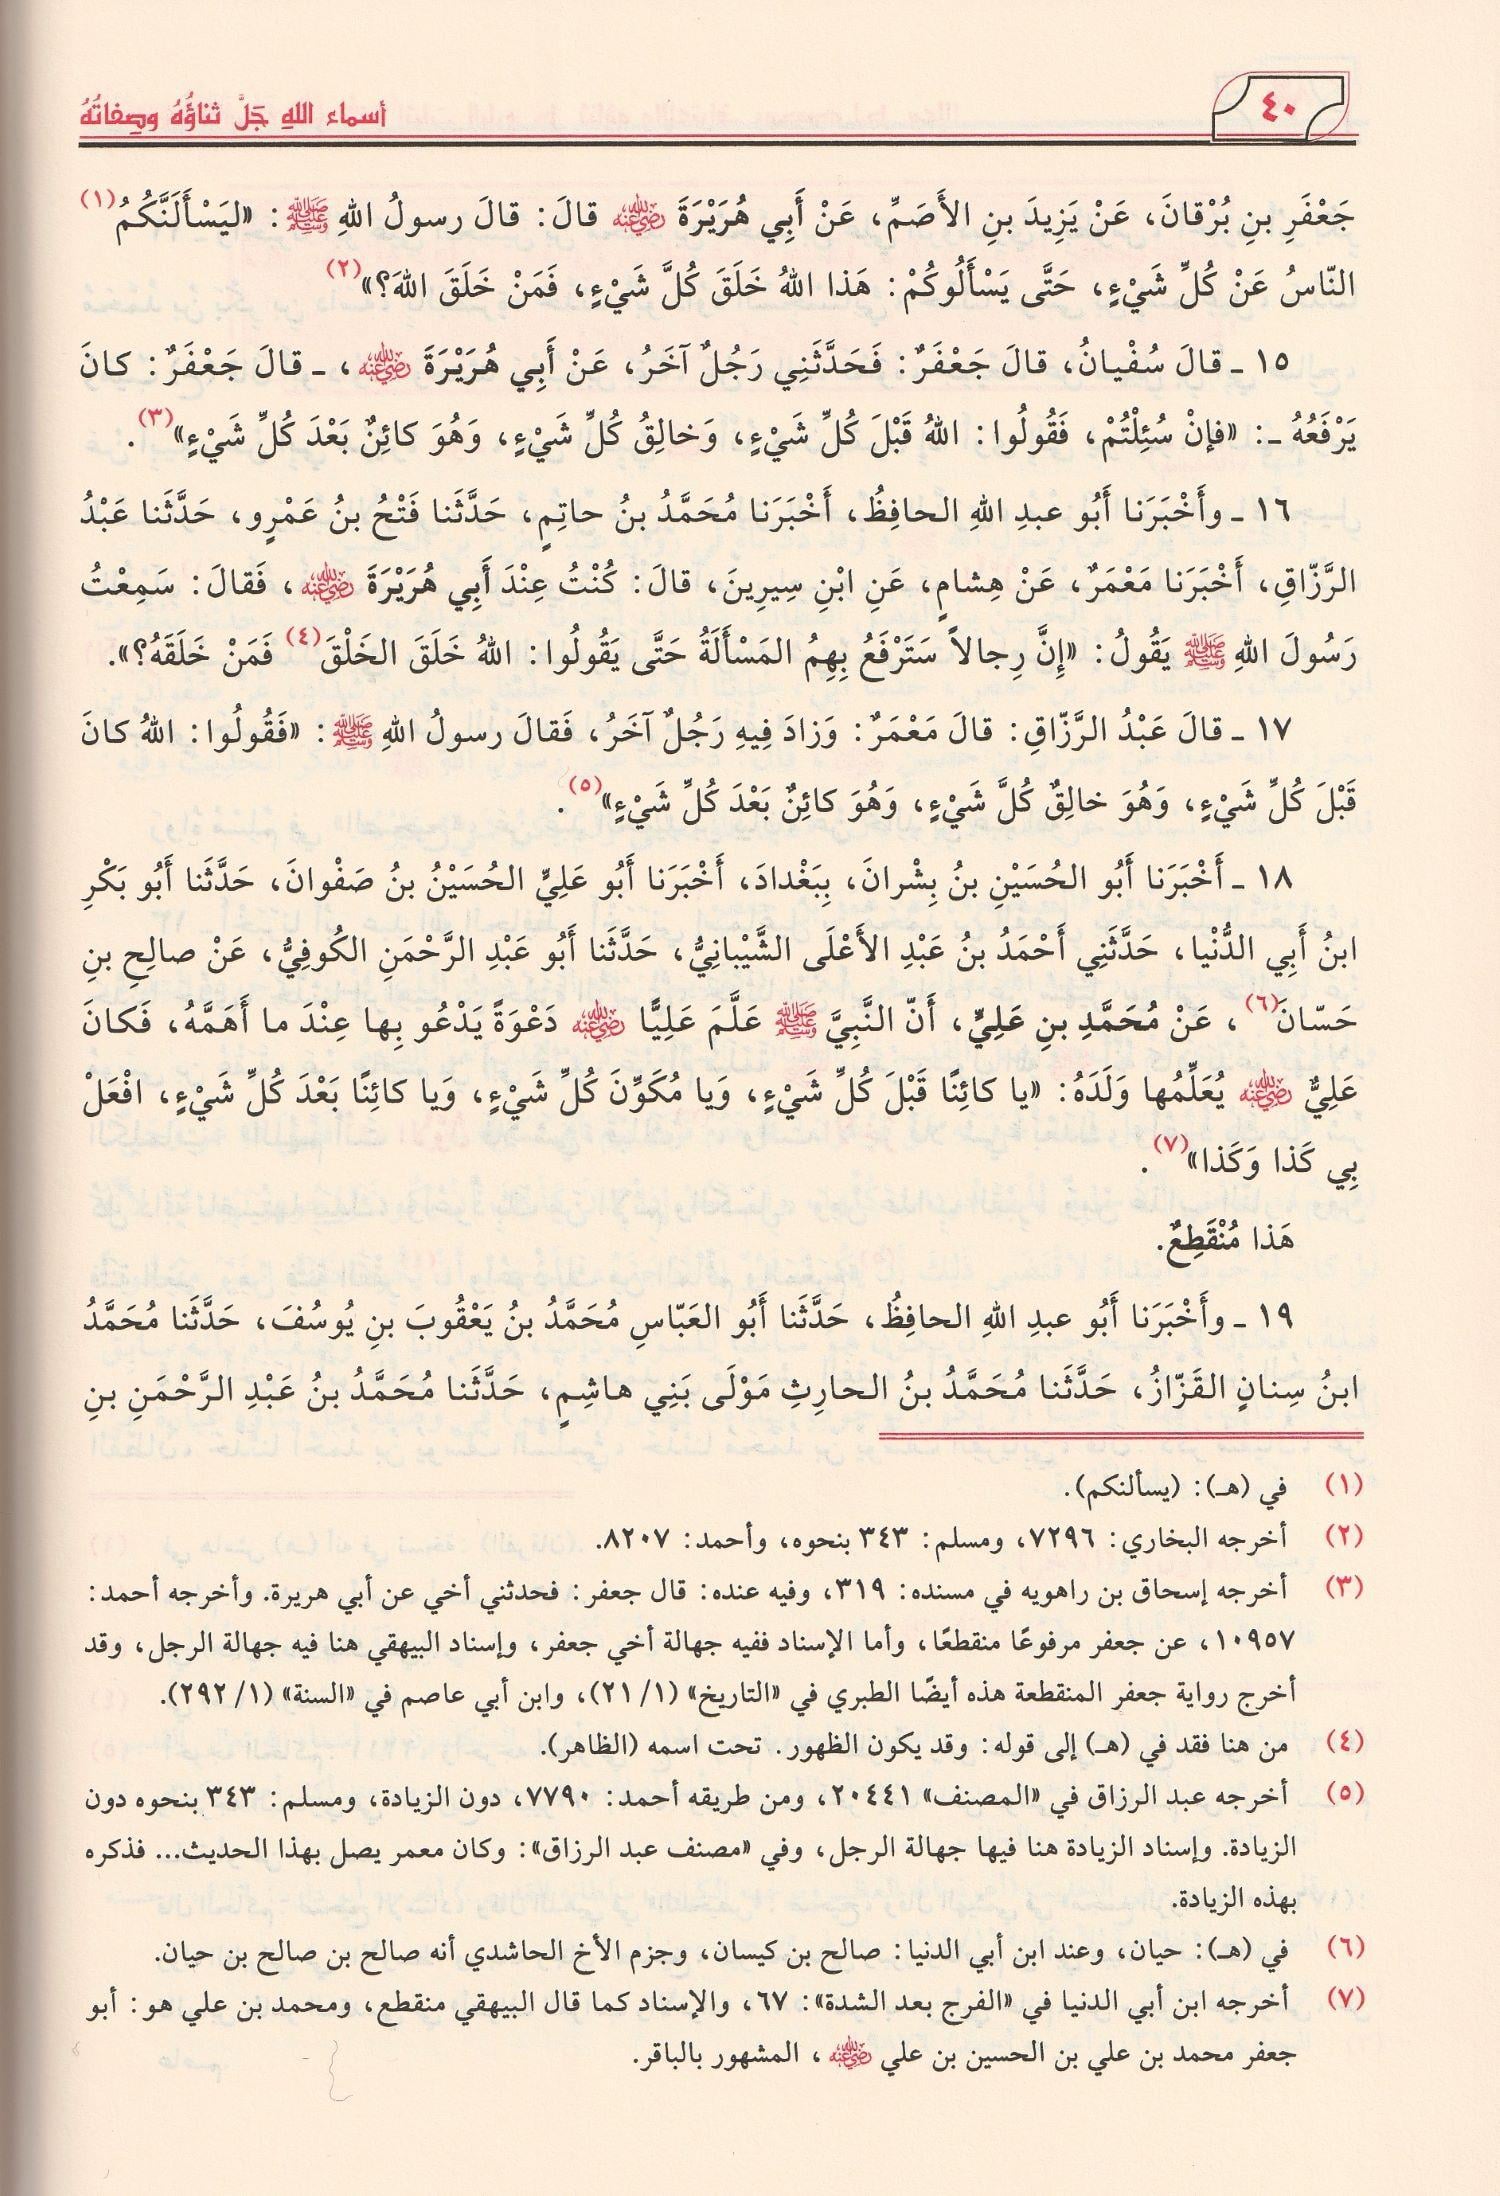 ٤٠
أسماء اللهِ جَلَّ ثناؤُهُ وصِفاتُهُ
جَعْفَرِ بنِ بُرْقانَ، عَنْ يَزِيدَ بنِ الأَصَمِّ، عَنْ أَبِي هُرَيْرَةَ رضي الله عنه قالَ: قالَ رسولُ اللهِ ﷺ: «ليَسْأَلَنَّكُمُ(١)
النّاسُ عَنْ كُلِّ شَيْءٍ، حَتَّى يَسْأَلُوكُمْ: هَذا اللهُ خَلَقَ كُلَّ شَيْءٍ، فَمَنْ خَلَقَ اللهَ؟»(٢)
١٥ ـ قالَ سُفْيانُ، قالَ جَعْفَرٌ: فَحَدَّثَنِي رَجُلٌ آخَرُ، عَنْ أَبِي هُرَيْرَةَ رضي الله عنه، ـ قالَ جَعْفَرٌ: كانَ
يَرْفَعُهُ ـ: «فإنْ سُئِلْتُمْ، فَقُولُوا: اللهُ قَبْلَ كُلِّ شَيْءٍ، وَخالِقُ كُلِّ شَيْءٍ، وَهُوَ كائِنٌ بَعْدَ كُلِّ شَيْءٍ»(٣).
١٦ ـ وأَخْبَرَنا أَبُو عبدِ اللهِ الحافِظُ، أَخْبَرَنا مُحَمَّدُ بنُ حاتِمٍ، حَدَّثَنا فَتْحُ بنُ عَمْرٍو، حَدَّثَنا عَبْدُ
الرَّزّاقِ، أَخْبَرَنا مَعْمَرٌ، عَنْ هِشامٍ، عَنِ ابْنِ سِيرِينَ، قالَ: كُنْتُ عِنْدَ أَبِي هُرَيْرَةَ رضي الله عنه، فَقالَ: سَمِعْتُ
رَسُولَ اللهِ ﷺ يَقُولُ: «إِنَّ رِجالاً سَتَرْفَعُ بِهِمُ المَسْأَلَةُ حَتَّى يَقُولُوا: اللهُ خَلَقَ الخَلْقَ(٤) فَمَنْ خَلَقَهُ؟».
١٧ ـ قالَ عَبْدُ الرَّزّاقِ: قالَ مَعْمَرٌ: وَزادَ فِيهِ رَجُلٌ آخَرُ، فَقالَ رسولُ اللهِ ﷺ: «فَقُولُوا: اللهُ كانَ
قَبْلَ كُلِّ شَيْءٍ، وَهُوَ خالِقٌ كُلَّ شَيْءٍ، وَهُوَ كائِنٌ بَعْدَ كُلِّ شَيْءٍ»(٥).
١٨ ـ أَخْبَرَنا أَبُو الحُسَيْنِ بنُ بِشْرانَ، بِبَغْدادَ، أَخْبَرَنا أَبُو عَلِيٍّ الحُسَيْنُ بنُ صَفْوانَ، حَدَّثَنا أَبُو بَكْرِ
ابنُ أَبِي الدُّنْيا، حَدَّثَنِي أَحْمَدُ بنُ عَبْدِ الأَعْلَى الشَّيْبانِيُّ، حَدَّثَنا أَبُو عَبْدِ الرَّحْمَنِ الكُوفِيُّ، عَنْ صالِحِ بنِ
حَسّانَ(٦)، عَنْ مُحَمَّدِ بنِ عَلِيٍّ، أَنّ النَّبِيَّ ﷺ عَلَّمَ عَلِيًّا رضي الله عنه دَعْوَةً يَدْعُو بِها عِنْدَ ما أَهَمَّهُ، فَكانَ
عَلِيٌّ رضي الله عنه يُعَلِّمُها وَلَدَهُ: «يا كائِنًا قَبْلَ كُلِّ شَيْءٍ، وَيا مُكَوِّنَ كُلِّ شَيْءٍ، وَيا كائِنًا بَعْدَ كُلِّ شَيْءٍ، افْعَلْ
بِي كَذا وَكَذا»(٧).
هَذا مُنْقَطِعٌ.
١٩ ـ وأَخْبَرَنا أَبُو عبدِ اللهِ الحافِظُ، حَدَّثَنا أَبُو العَبّاسِ مُحَمَّدُ بنُ يَعْقُوبَ بنِ يُوسُفَ، حَدَّثَنا مُحَمَّدُ
ابنُ سِنانٍ القَزّازُ، حَدَّثَنا مُحَمَّدُ بنُ الحارِثِ مَوْلَى بَنِي هاشِمٍ، حَدَّثَنا مُحَمَّدُ بنُ عَبْدِ الرَّحْمَنِ بنِ
(١) في (هـ): (يسألنكم).
(٢) أخرجه البخاري: ٧٢٩٦، ومسلم: ٣٤٣ بنحوه، وأحمد: ٨٢٠٧.
(٣) أخرجه إسحاق بن راهويه في مسنده: ٣١٩، وفيه عنده: قال جعفر: فحدثني أخي عن أبي هريرة. وأخرجه أحمد:
١٠٩٥٧، عن جعفر مرفوعًا منقطعًا، وأما الإسناد ففيه جهالة أخي جعفر، وإسناد البيهقي هنا فيه جهالة الرجل، وقد
أخرج رواية جعفر المنقطعة هذه أيضًا الطبري في «التاريخ» (١/ ٢١)، وابن أبي عاصم في «السنة» (١/ ٢٩٢).
(٤) من هنا فقد في (هـ) إلى قوله: وقد يكون الظهور. تحت اسمه (الظاهر).
(٥) أخرجه عبد الرزاق في «المصنف» ٢٠٤٤١، ومن طريقه أحمد: ٧٧٩٠، دون الزيادة، ومسلم: ٣٤٣ بنحوه دون
الزيادة. وإسناد الزيادة هنا فيها جهالة الرجل، وفي «مصنف عبد الرزاق»: وكان معمر يصل بهذا الحديث... فذكره
بهذه الزيادة.
(٦) في (هـ): حيان، وعند ابن أبي الدنيا: صالح بن كيسان، وجزم الأخ الحاشدي أنه صالح بن صالح بن حيان.
(٧) أخرجه ابن أبي الدنيا في «الفرج بعد الشدة»: ٦٧، والإسناد كما قال البيهقي منقطع، ومحمد بن علي هو: أبو
جعفر محمد بن علي بن الحسين بن علي رضي الله عنه، المشهور بالباقر.